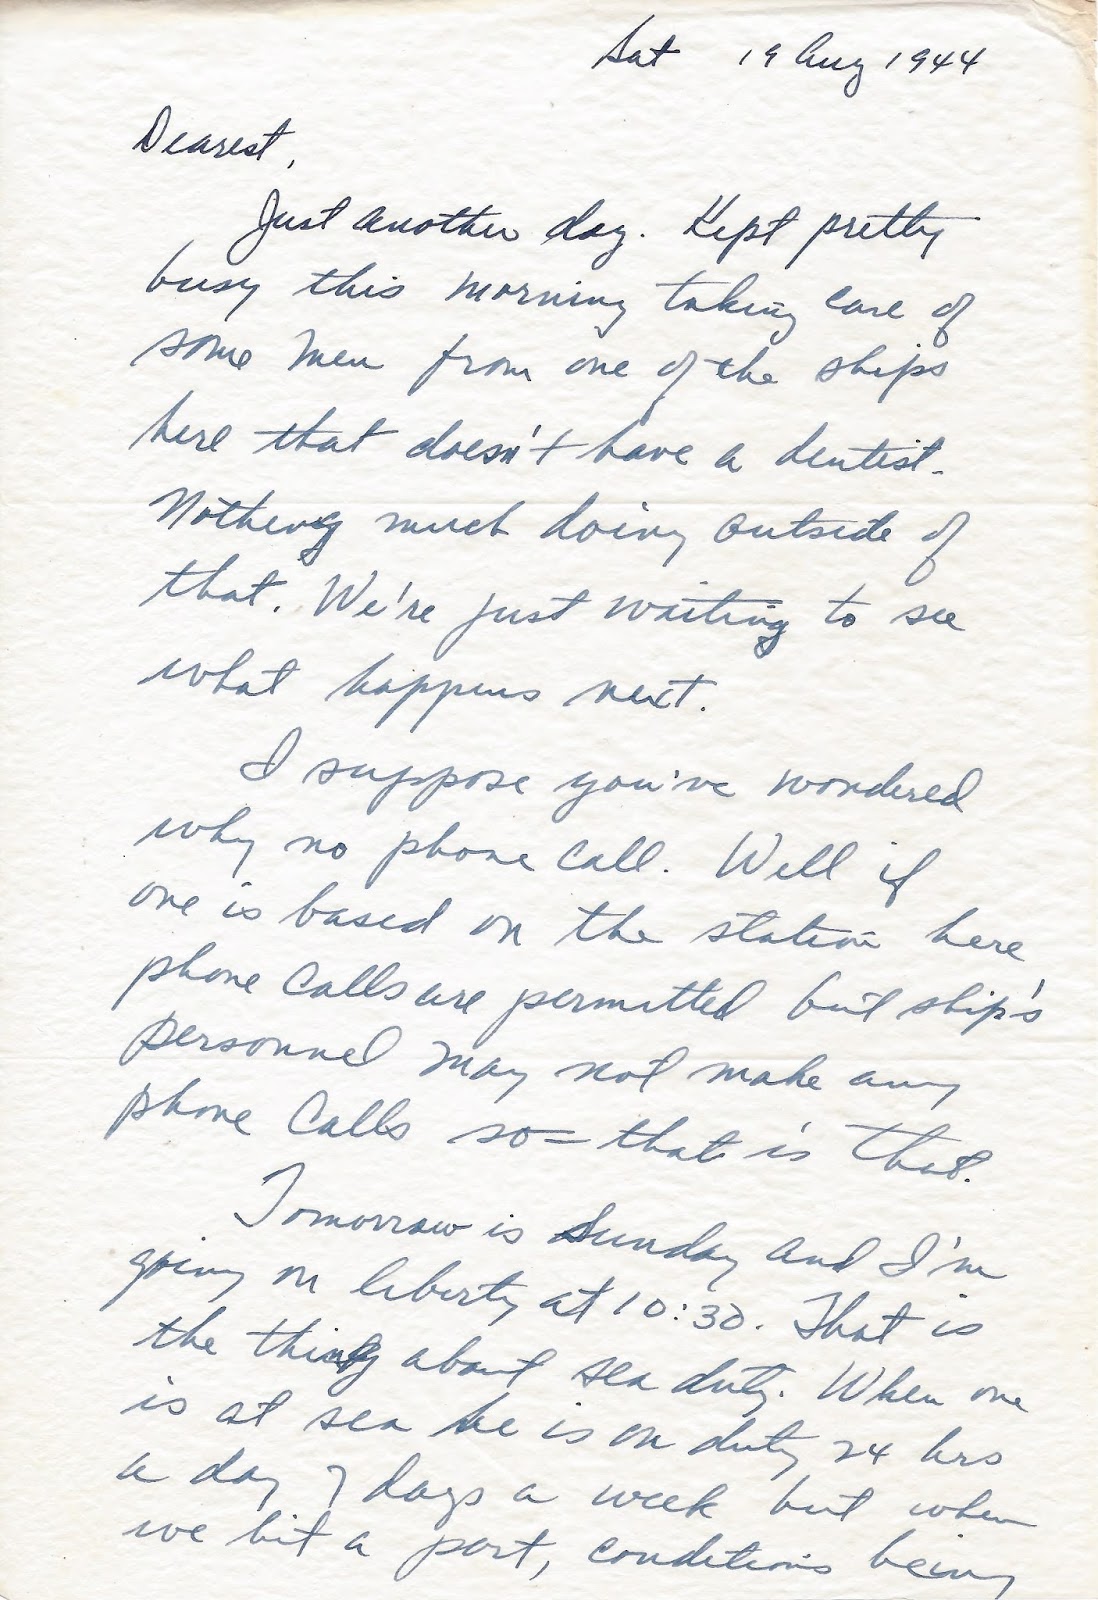 Sat 19 Aug 1944
Dearest,
Just another day. Kept pretty
busy this morning taking care of
some men from one of the ships
here that doesn't have a dentist.
Nothing much doing outside of
that. We're just waiting to see
what happens next.
I suppose you've wondered
why no phone call. Well if
one is based on the station here
phone calls are permitted but ship's
personnel may not make any
phone calls so = that is that.
Tomorrow is Sunday and I'm
going on liberty at 10:30. That is
the thing about sea duty. When one
is at sea he is on duty 24 hrs
a day 7 days a week but when
we hit a port, conditions being